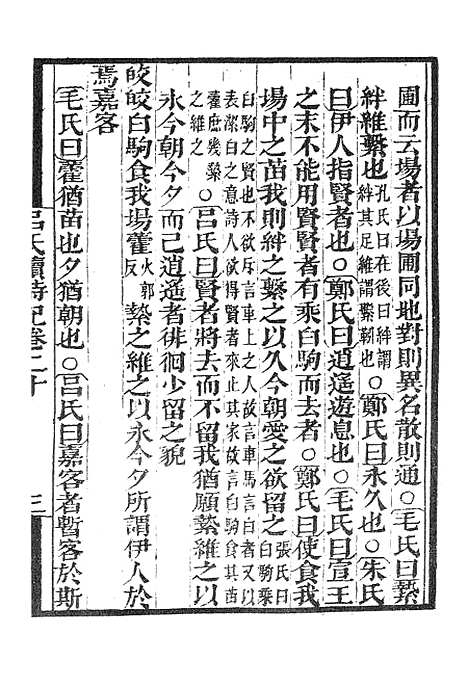 圃而云場者以場圃同地對則異名散則通〇毛氏曰縶
絆維繫也孔氏曰在後曰絆謂
絆其足維謂繫靷也〇鄭氏曰永久也〇朱氏
曰伊人指賢者也〇鄭氏曰逍遙遊息也〇毛氏曰宣王
之末不能用賢賢者有乘白駒而去者〇鄭氏曰使食我
場中之苗我則絆之繫之以久今朝愛之欲留之張氏曰
白駒乘
白駒之賢也不欲斥言車上之人故言車馬言白者又以
表潔白之意詩人欲得賢者來止其家故言白駒食其苗
藿庶幾縶
之維之〇呂氏曰賢者將去而不留我猶願縶維之以
永今朝今夕而已逍遙者徘徊少留之貌
皎皎白駒食我場藿火郭
反縶之維之以永今夕所謂伊人於
焉嘉客
毛氏曰藿猶苗也夕猶朝也〇呂氏曰嘉客者暫客於斯
呂氏讀詩記卷二十
三